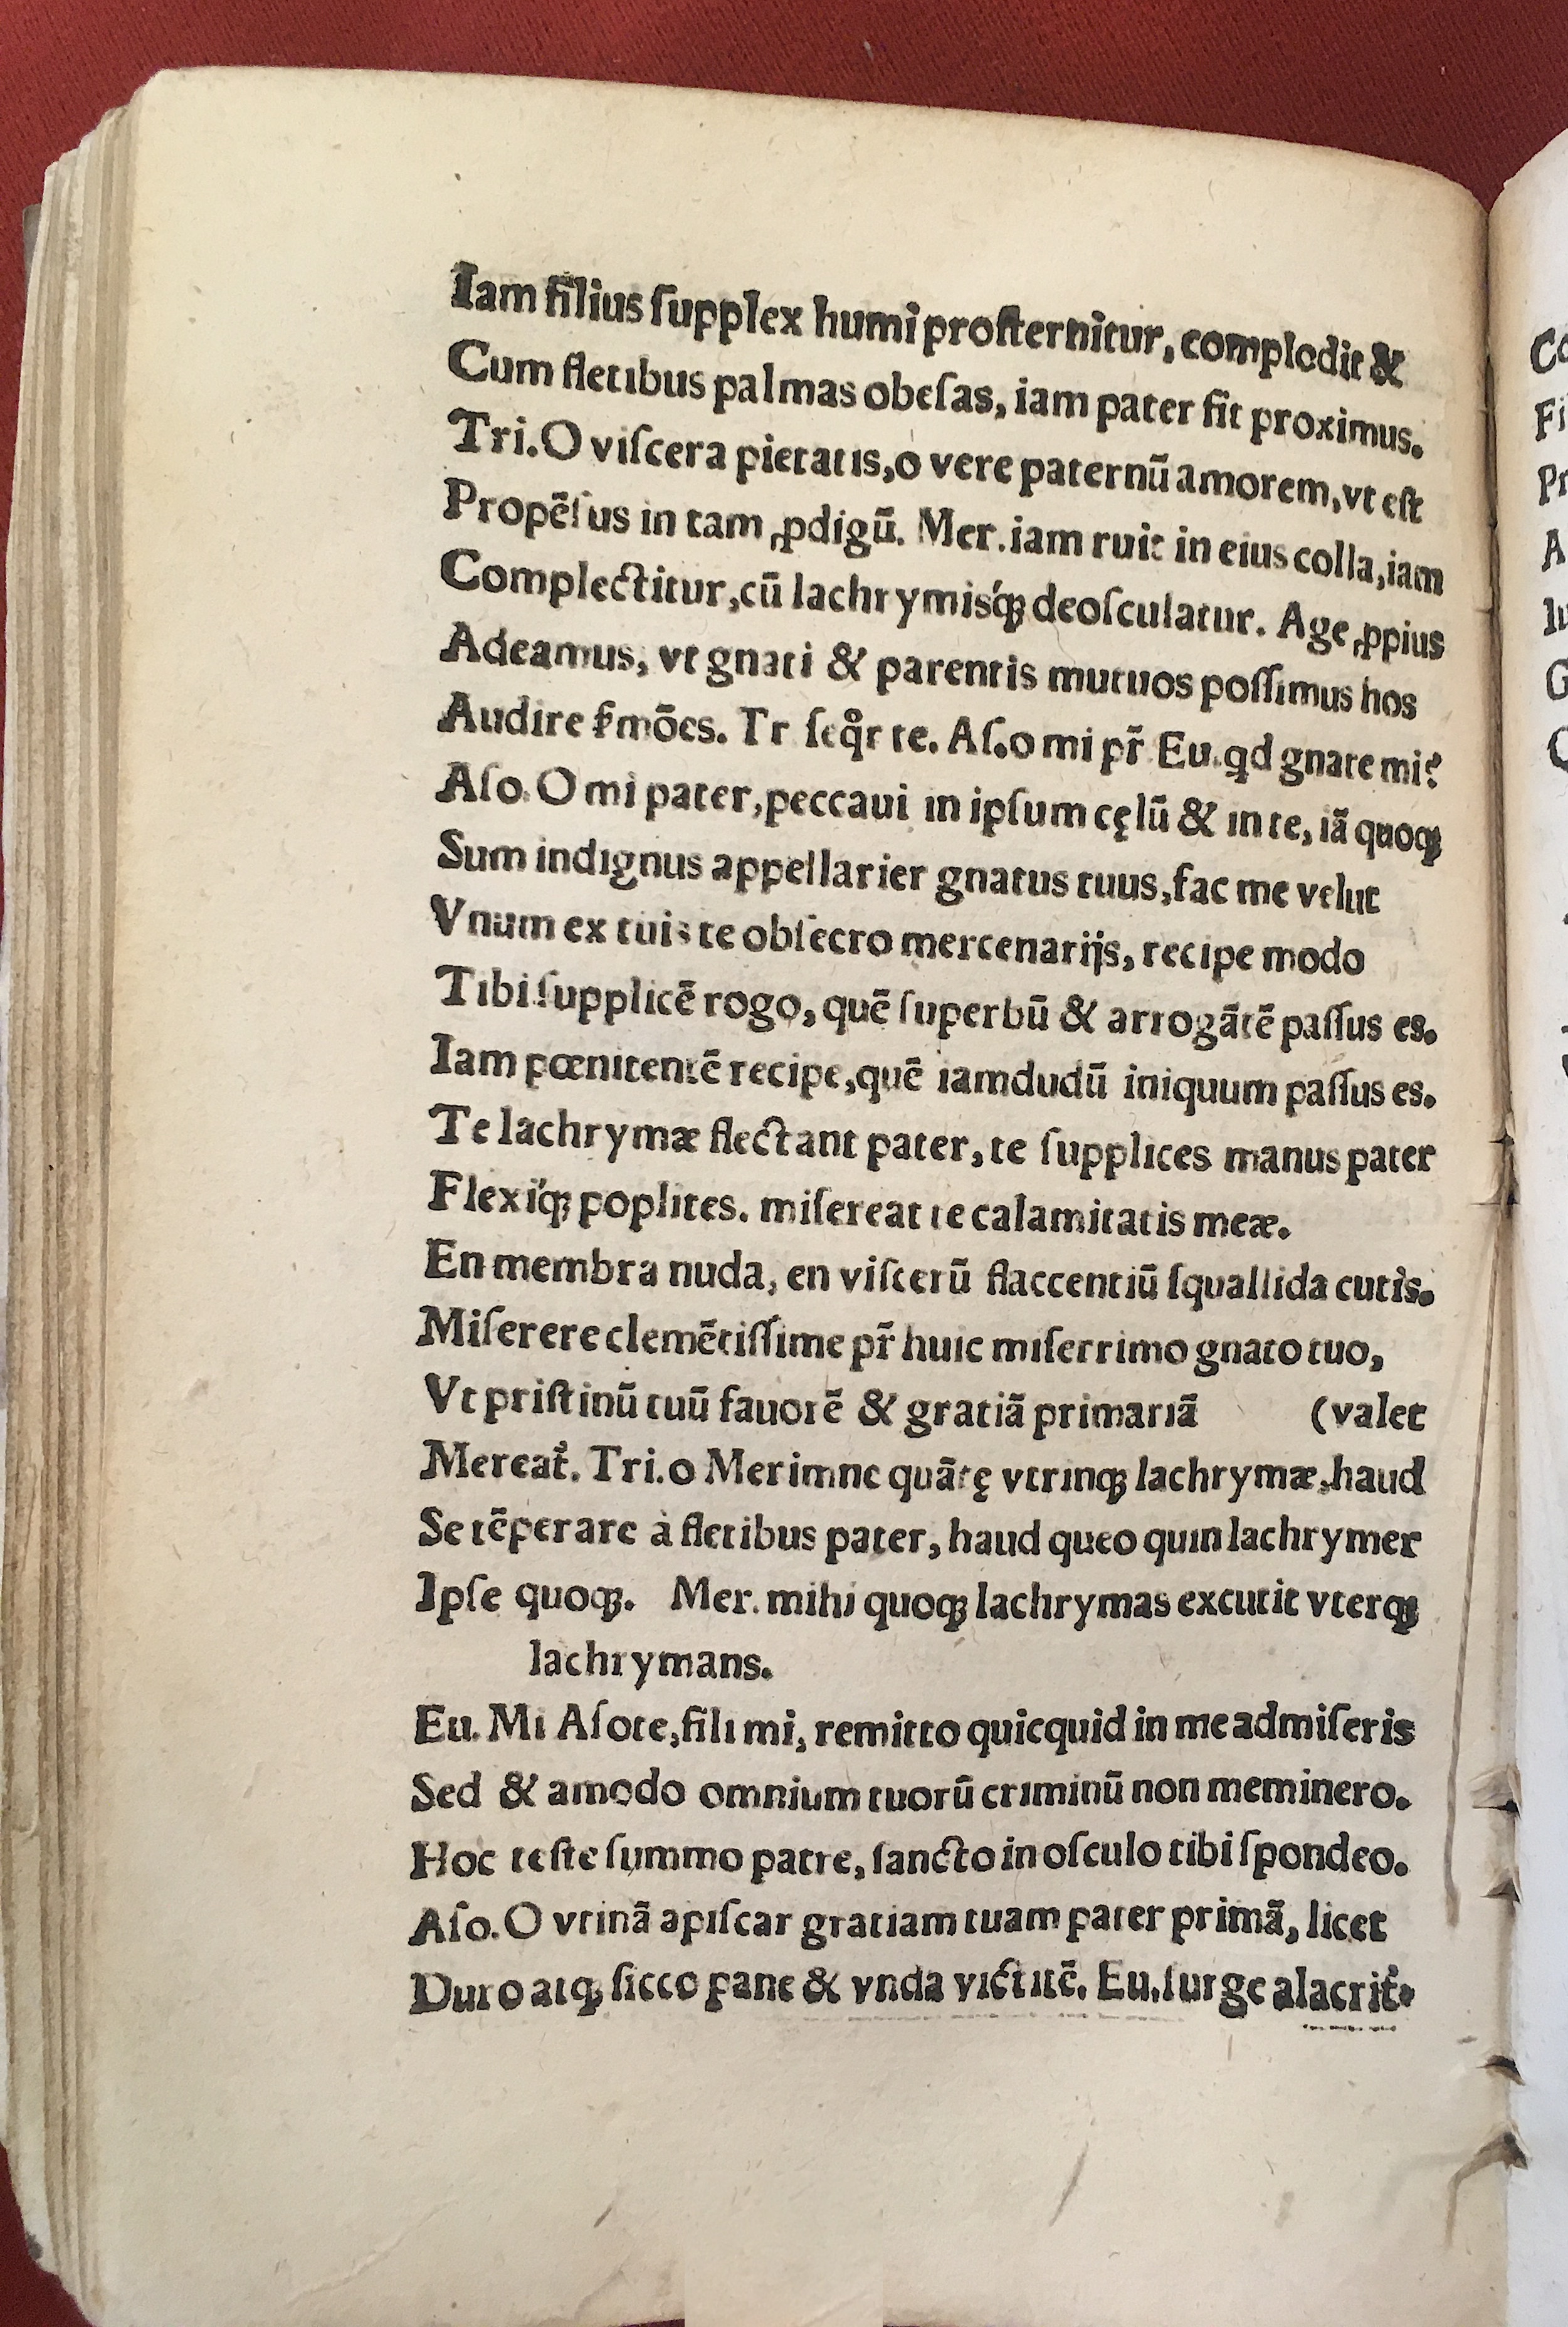 Iam filius ſupplex humi proſternitur, complodit &
Cum fletibus palmas obeſas, iam pater fit proximus.
Tri. O viſcera pietatis, o vere paternū amorem, vt eſt
Propēſus in tam ꝓdigū. Mer. iam ruit in eius colla, iam
Complectitur, cū lachrymisq́ꝫ deoſculatur. Age, ꝓpius
Adeamus, vt gnati & parentis mutuos poſſimus hos
Audire ẜmões. Tr ſeqͦr te. Aſ. o mi pr̄ Eu. qd gnate mi?
Aſo. O mi pater, peccaui in ipſum cęlū & in te, iā quoqꝫ
Sum indignus appellarier gnatus tuus, fac me velut
Vnum ex tuis te obſecro mercenarijs, recipe modo
Tibi ſupplicē rogo, quē ſuperbū & arrogātē paſſus es.
Iam pœnitentē recipe, quē iamdudū iniquum paſſus es.
Te lachrymæ flectant pater, te ſupplices manus pater
Flexiq́ꝫ poplites. miſereat te calamitatis meæ.
En membra nuda, en viſcerū flaccentiū ſquallida cutis.
Miſerere clemētiſſime pr̄ huic miſerrimo gnato tuo,
Vt priſtinū tuū fauorē & gratiā primariā (valet
Mereat᷑. Tri. o Merimne quātę vtrinqꝫ lachrymæ, haud
Se tēperare à fletibus pater, haud queo quin lachrymer
Ipſe quoqꝫ. Mer. mihi quoqꝫ lachrymas excutit vterqꝫ
lachrymans.
Eu. Mi Aſote, fili mi, remitto quicquid in me admiſeris
Sed & amodo omnium tuorū criminū non meminero.
Hoc teſte ſummo patre, ſancto in oſculo tibi ſpondeo.
Aſo. O vtinā apiſcar gratiam tuam pater primā, licet
Duro atqꝫ ſicco pane & vnda victitē. Eu. ſurge alacrit᷑.